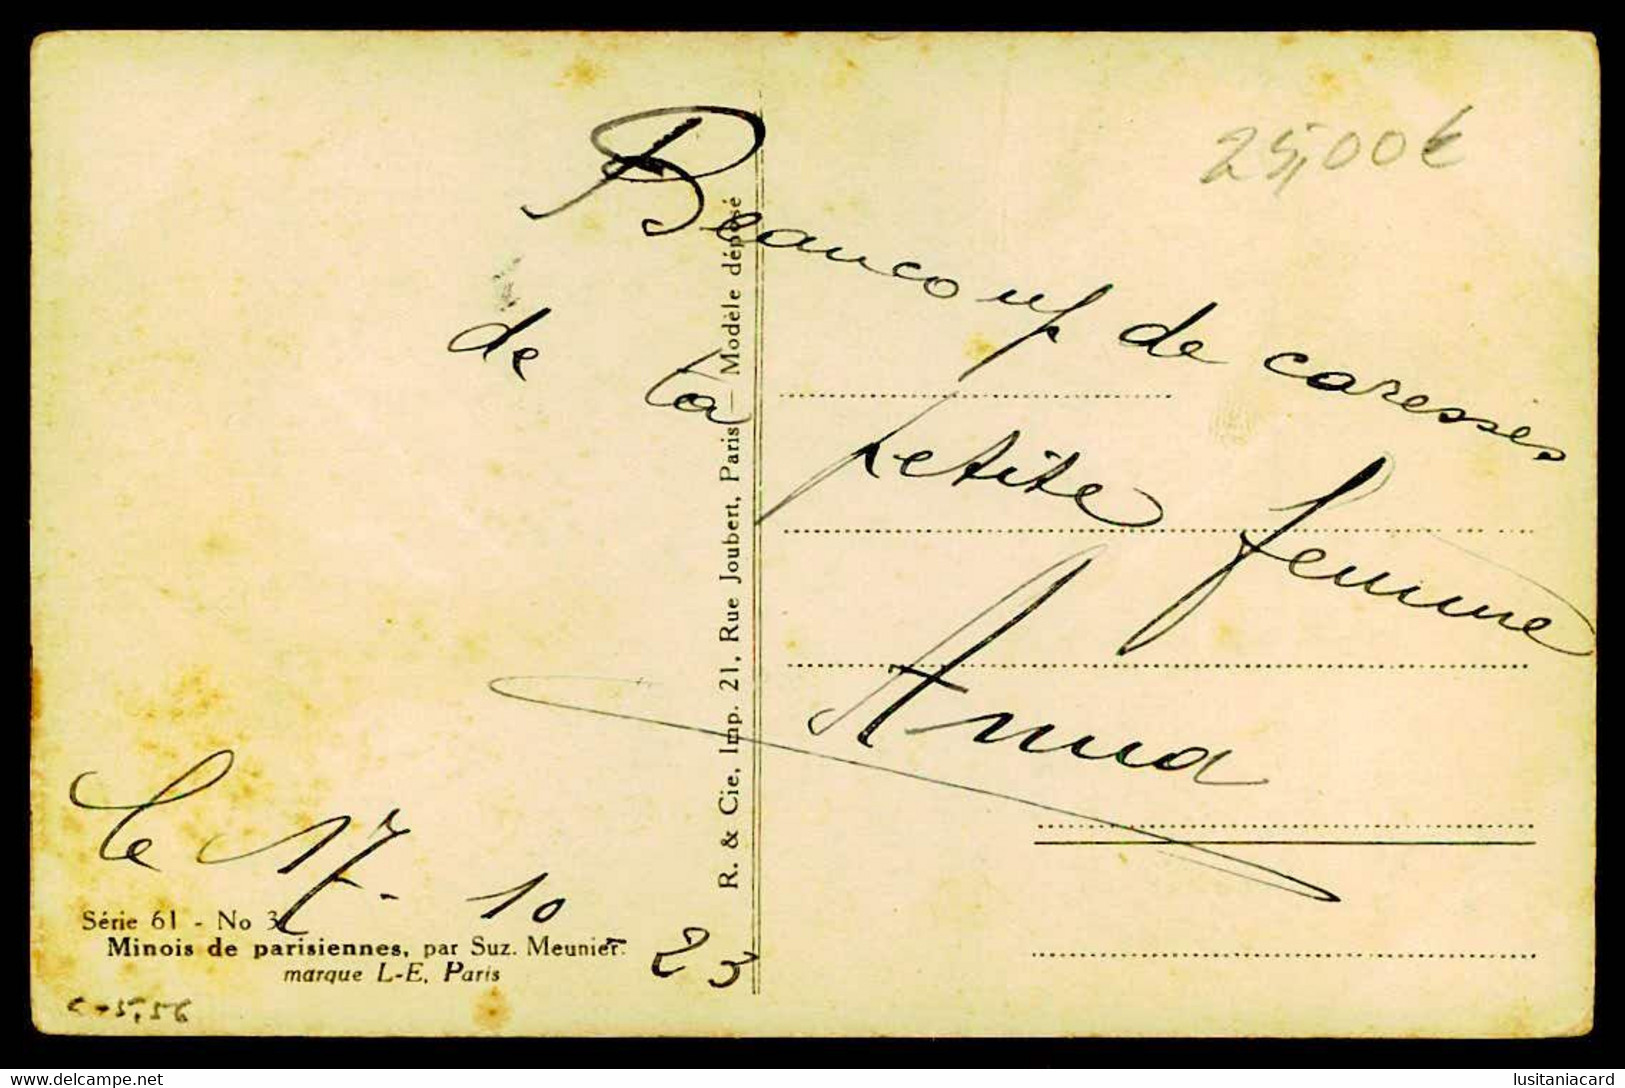 25,00€
Beaucoup de caresses
de ta petite femme
Anna
le 17-10-23
R. & Cie, Imp. 21, Rue Joubert, Paris — Modèle déposé
Série 61 - No 3
Minois de parisiennes, par Suz. Meunier.
marque L-E, Paris
https://www.delcampe.net
lusitaniacard